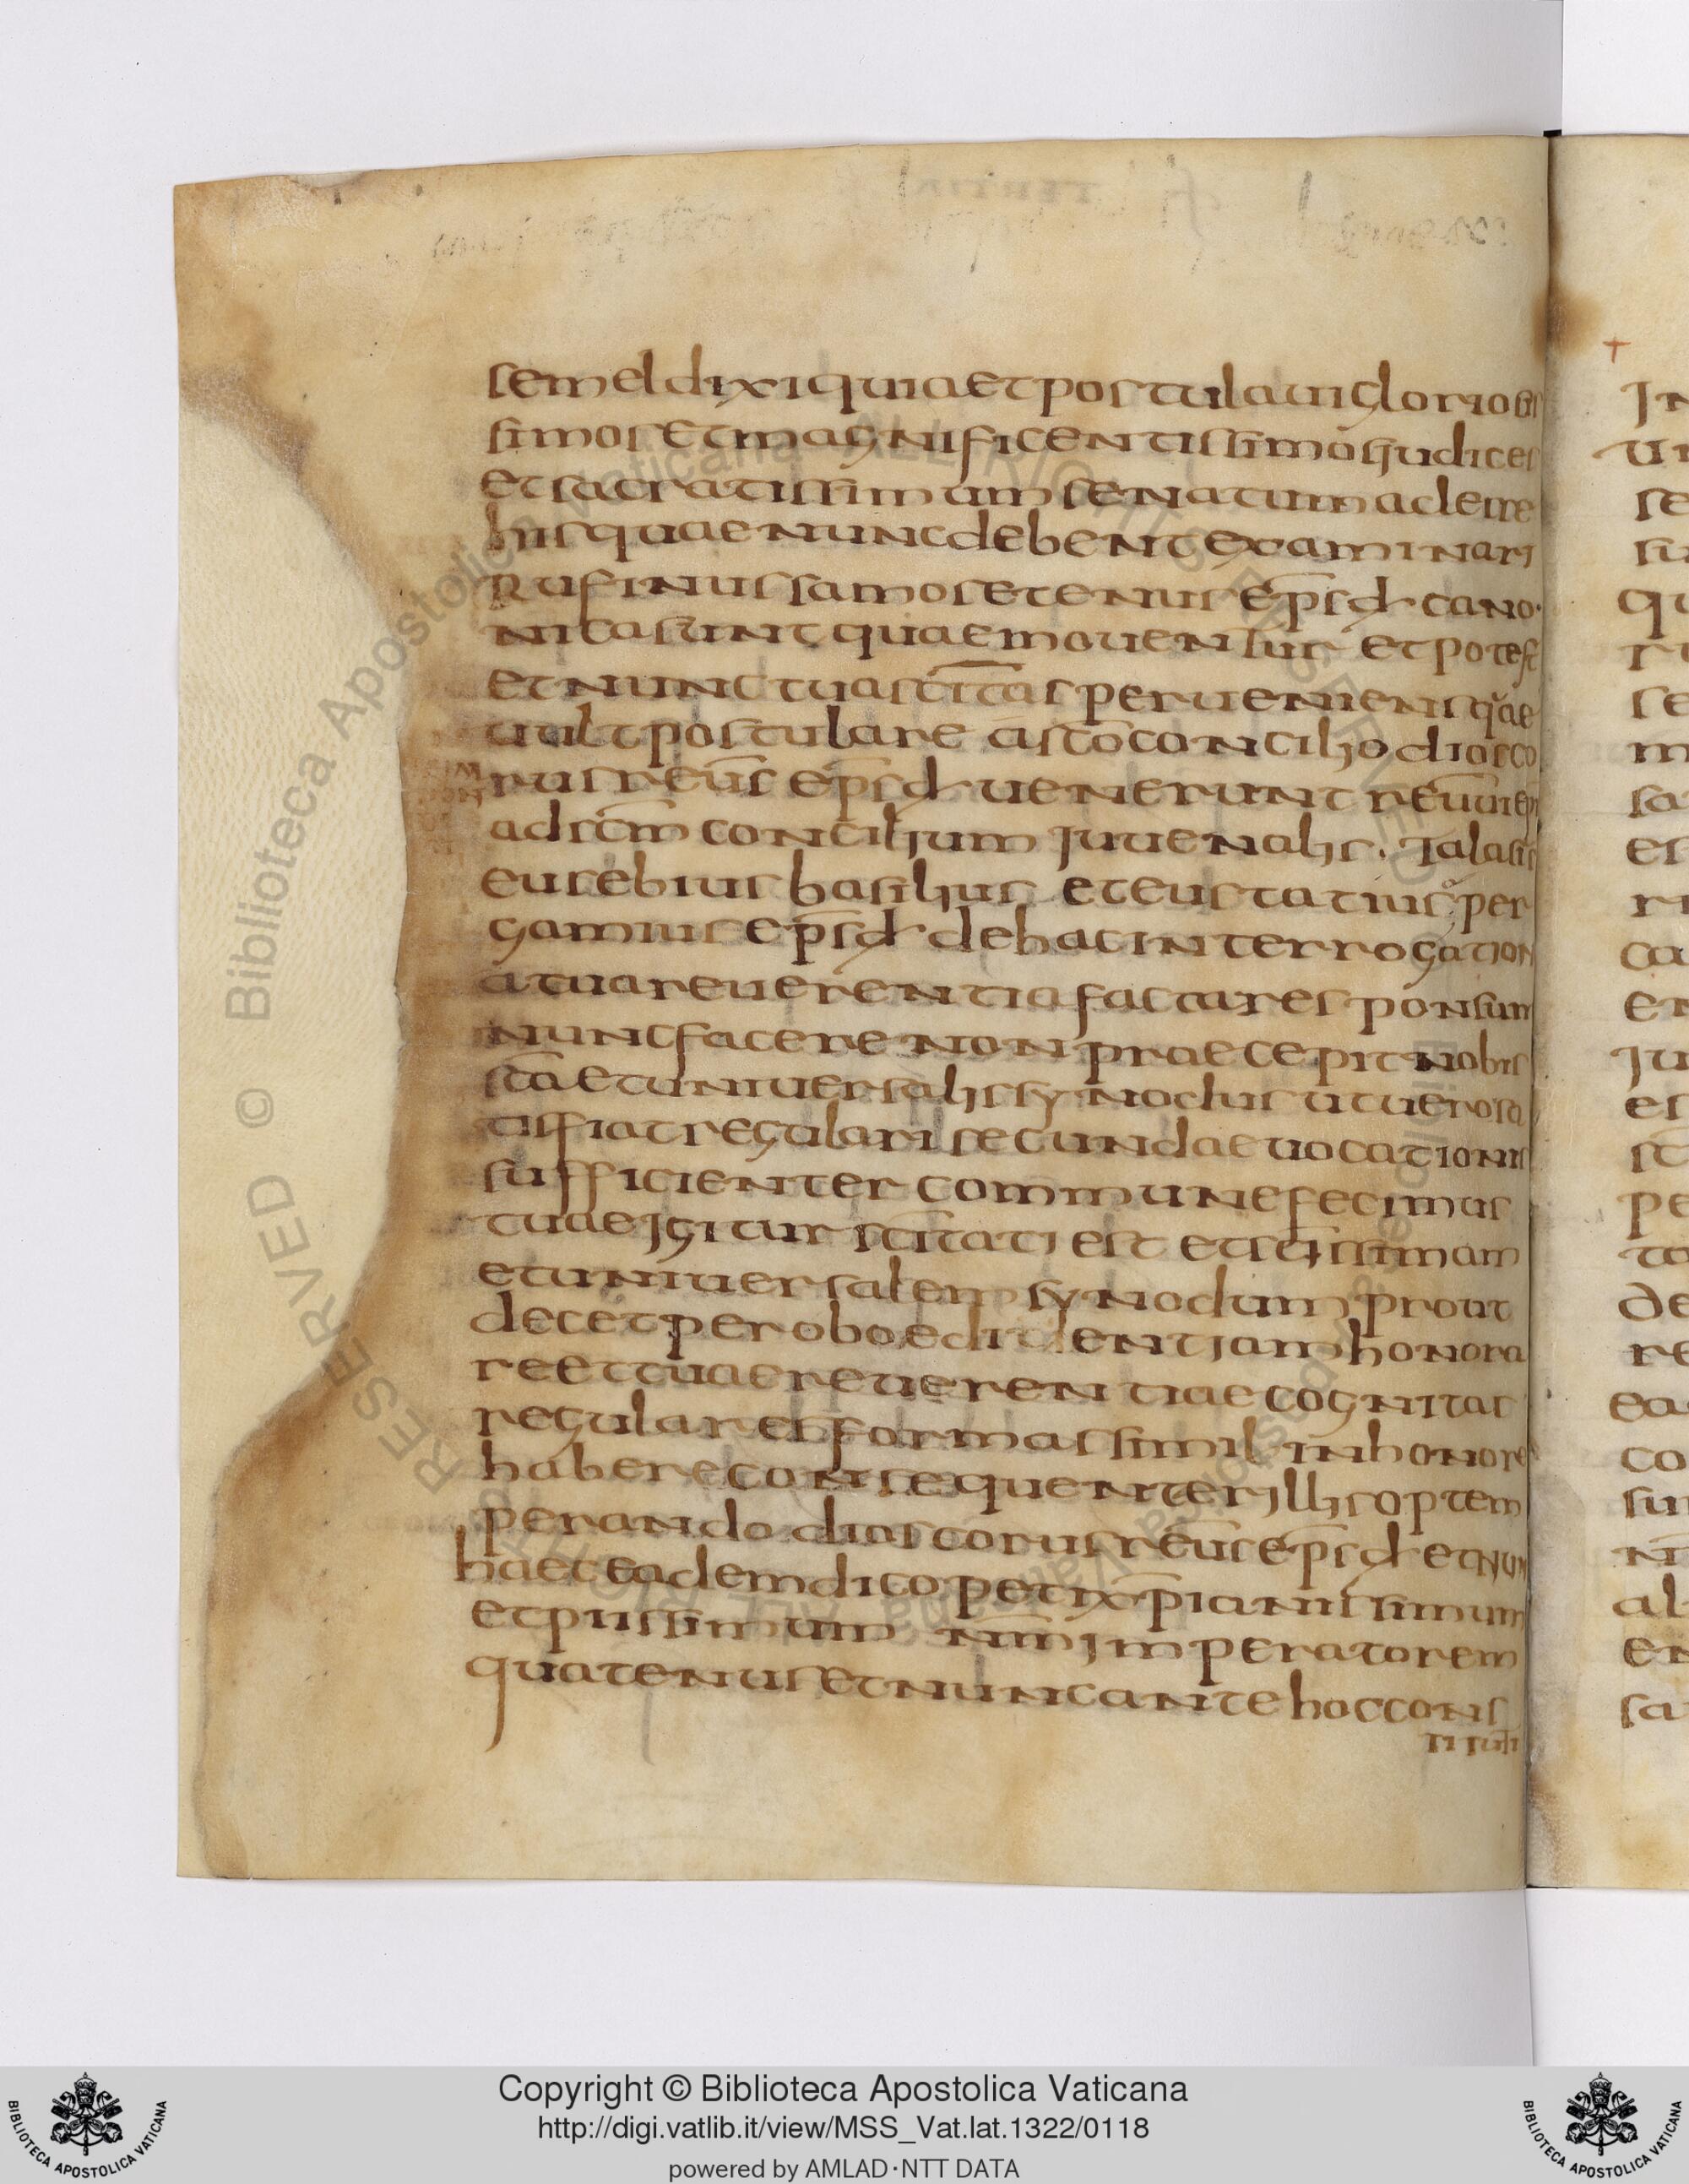 semel dixi quia et postulaui gloriosis
simos et magnificentissimos iudices
et sacratissimum senatum adesse
his quae nunc debent examinari
Rufinus samosetenus ep̄s d̄ cano
nica sunt quae mouentur et potest
et nunc tua sc̄itas perueniens quae
uult postulare a sc̄o concilio diosco
rus reūs ep̄s d̄ uenerunt reūui ep̄i
ad sc̄m concilium iuuenalis. Talasis
eusebius basilius et eustatius per
gamius ep̄s d̄ de hac interrogation
a tua reuerentia facta responsum
nunc facere non praecepit nobis
sc̄a et uniuersalis synodus ut uero sa
tisfiat regulari secundae uocationis
sufficienter commune fecimus
tuae igitur sc̄itati est et sc̄issimam
et uniuersalem synodum prout
decet per oboedi entiam honora
re et tuae reuerentiae cognitas
regulares formas simil in honore
habere consequenter illis optem
perando dioscorus reūs ep̄s d̄ et nunc
haec eadem dico peti xp̄ianissimum
et piissimum nm̄ imperatorem
quatenus et nunc ante hoc cons
Copyright © Biblioteca Apostolica Vaticana
http://digi.vatlib.it/view/MSS_Vat.lat.1322/0118
powered by AMLAD·NTT DATA
BIBLIOTECA APOSTOLICA VATICANA
BIBLIOTECA APOSTOLICA VATICANA